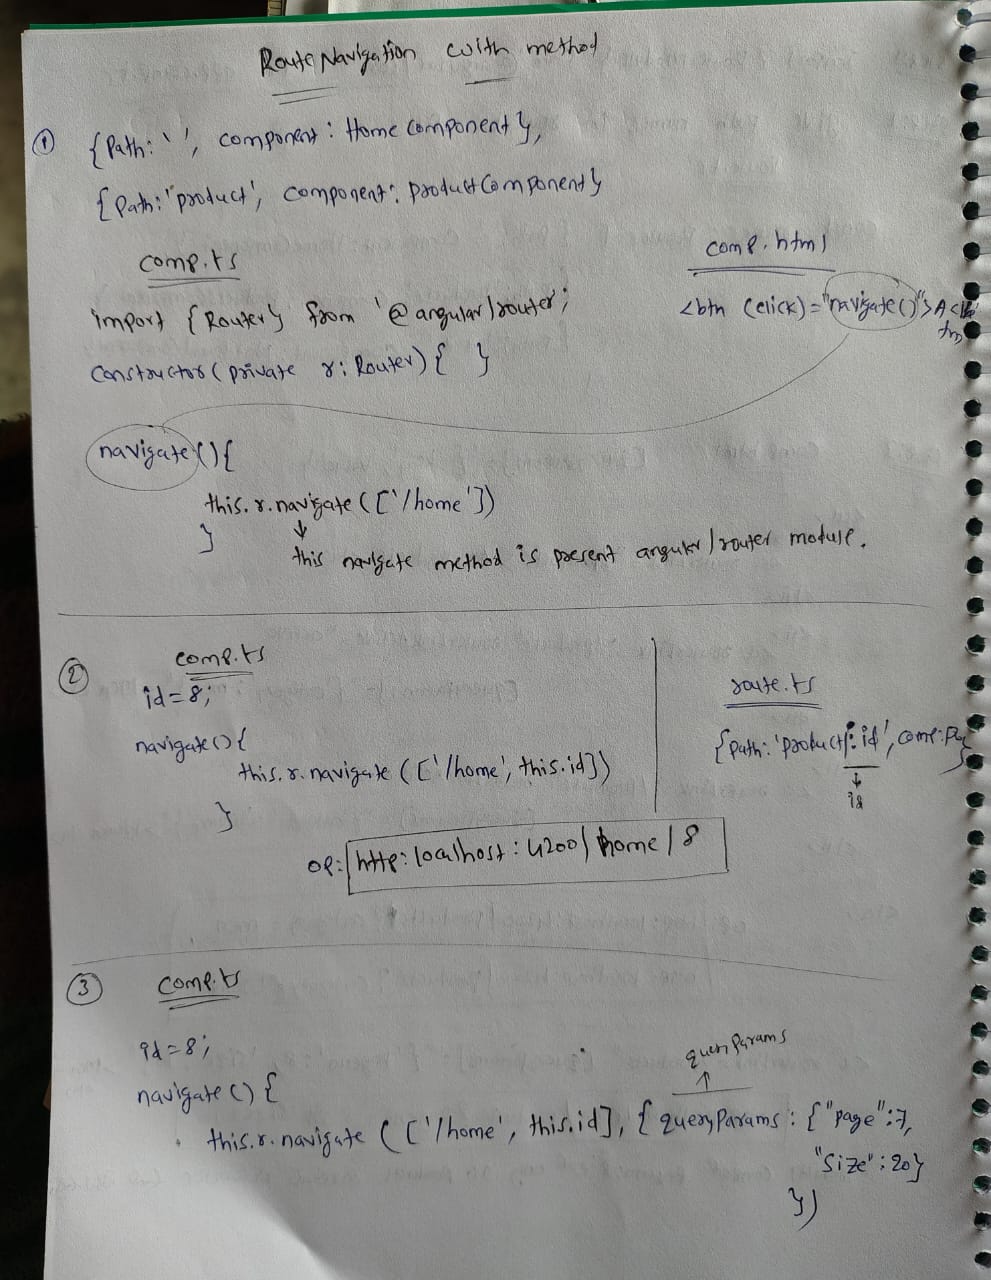 Route Navigation with method
① {Path: '', component: Home Component},
{Path: 'product', component: productComponent}
comp.ts
import {Router} from '@angular/router';
constructor(private r: Router) { }
comp.html
<btn (click)="navigate()">
navigate() {
this.r.navigate(['/home'])
}
this navigate method is present angular/router module.
② comp.ts
id=8;
navigate() {
this.r.navigate(['/home', this.id])
}
route.ts
{path: 'product/:id', comp:
op: http:localhost:4200/home/8
③ comp.ts
id=8;
navigate() {
queryParams
this.r.navigate(['/home', this.id], { queryParams: {"page":7,
"size":20}
})